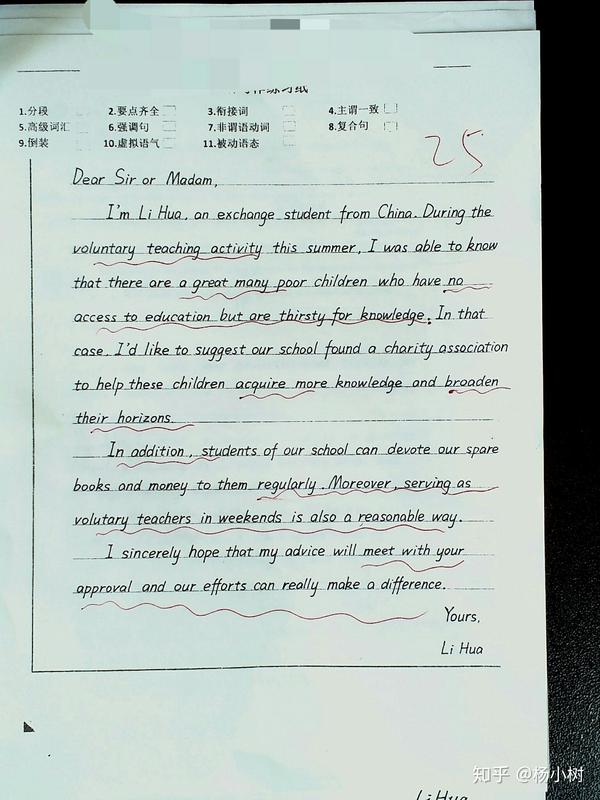 1.分段 2.要点齐全 3.衔接词 4.主谓一致
5.高级词汇 6.强调句 7.非谓语动词 8.复合句
9.倒装 10.虚拟语气 11.被动语态
25
Dear Sir or Madam,
I'm Li Hua, an exchange student from China. During the
voluntary teaching activity this summer, I was able to know
that there are a great many poor children who have no
access to education but are thirsty for knowledge. In that
case, I'd like to suggest our school found a charity association
to help these children acquire more knowledge and broaden
their horizons.
In addition, students of our school can devote our spare
books and money to them regularly. Moreover, serving as
volutary teachers in weekends is also a reasonable way.
I sincerely hope that my advice will meet with your
approval and our efforts can really make a difference.
Yours,
Li Hua
知乎 @杨小树
Li Hua